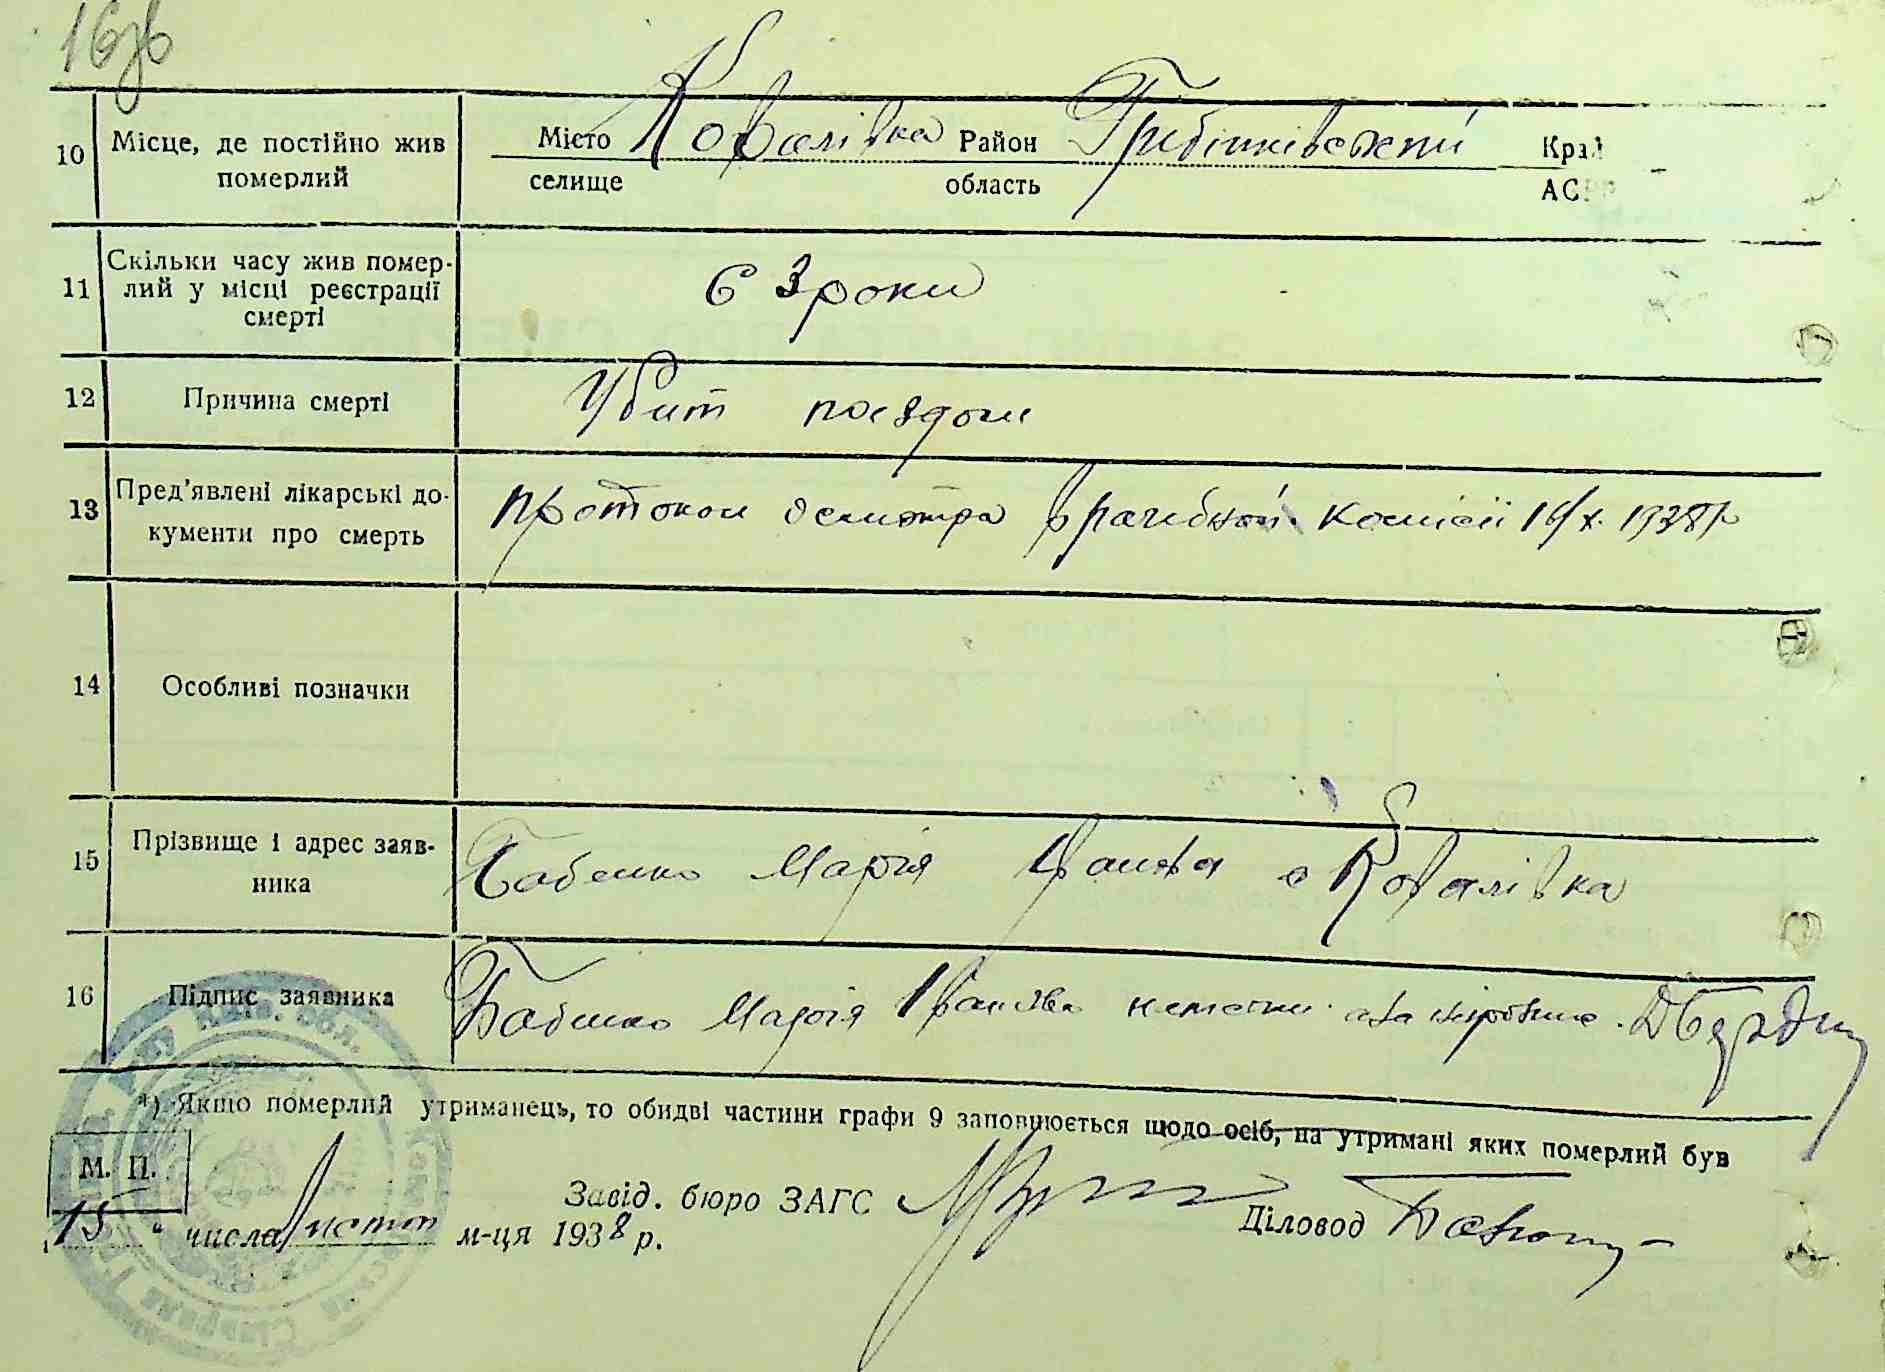 16зв
10 Місце, де постійно жив померлий Місто селище Ковалівка Район область Гребінківський Край АСРР
11 Скільки часу жив померлий у місці реєстрації смерті 63 роки
12 Причина смерті Убит поездом
13 Пред'явлені лікарські документи про смерть протокол осмотра врачебной комісії 16/X. 1938 р
14 Особливі позначки
15 Прізвище і адрес заявника Бабенко Марія Іванівна с Ковалівка
16 Підпис заявника Бабенко Марія Іванівна
*) Якщо померлий утриманець, то обидві частини графи 9 заповнюється щодо осіб, на утримані яких померлий був
М. П.
Завід. бюро ЗАГС
Діловод
15 " числа Листоп м-ця 1938 р.